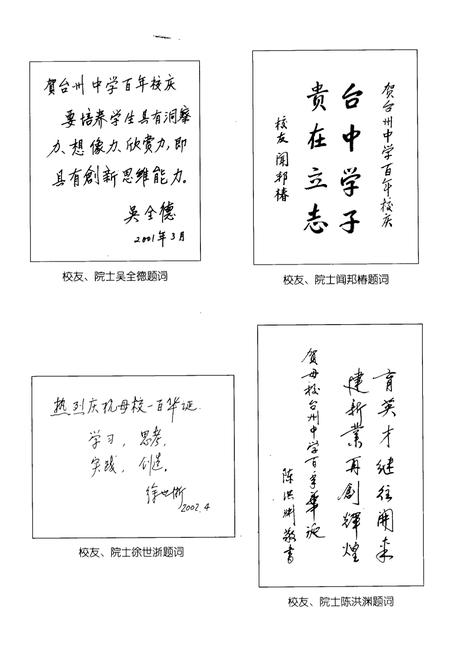 賀台州中学百年校庆
要培养学生具有洞察
力、想像力、欣赏力，即
具有創新思维能力。
吴全德
2001年3月
校友、院士吴全德题词
贺台州中学百年校庆
台中学子
贵在立志
校友 闻邦椿
校友、院士闻邦椿题词
热烈庆祝母校一百华诞
学习，思考，
实践，创造。
徐世浙
2002.4
校友、院士徐世浙题词
育英才继往開来
建新業再創輝煌
贺母校台州中学百年華诞
陈洪渊敬書
校友、院士陈洪渊题词